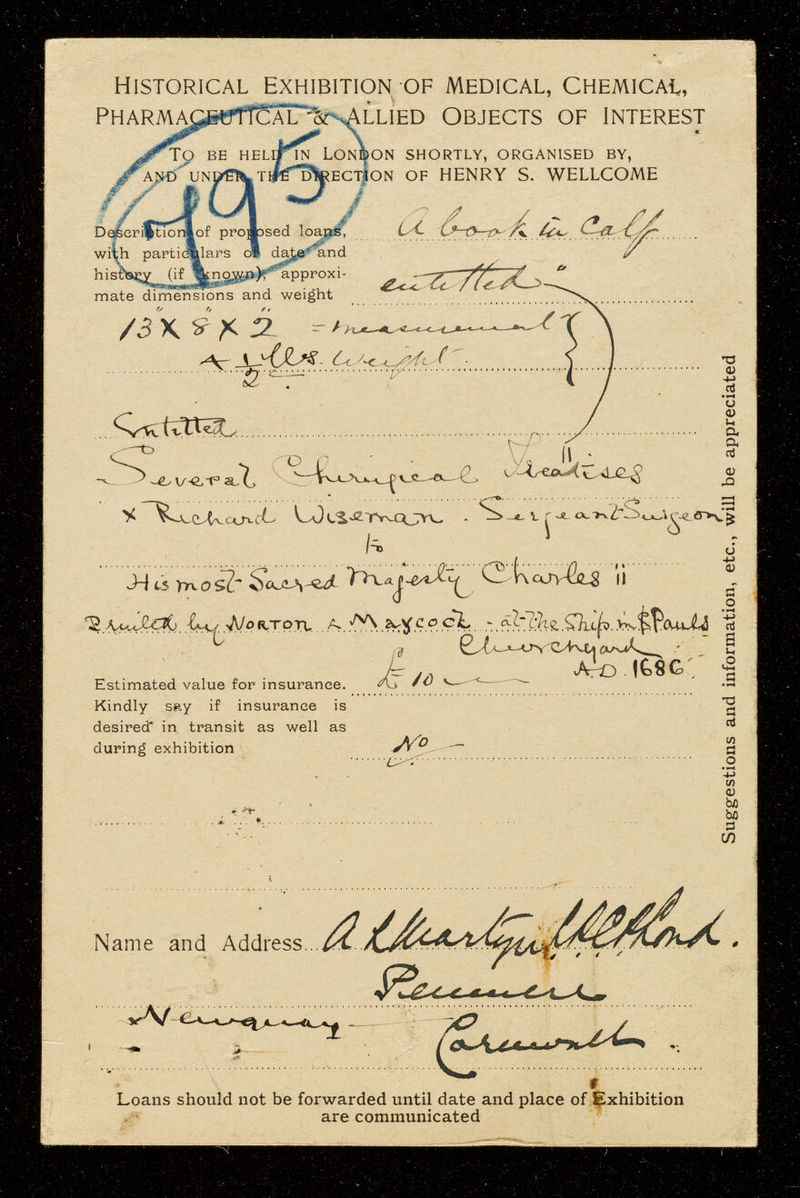 HISTORICAL EXHIBITION OF MEDICAL, CHEMICAL,
PHARMACEUTICAL & ALLIED OBJECTS OF INTEREST
TO BE HELD IN LONDON SHORTLY, ORGANISED BY,
AND UNDER THE DIRECTION OF HENRY S. WELLCOME
795
Description of proposed loans, A book in Calf
with particulars of date and
history (if known), approxi- entitled "
mate dimensions and weight
13" X 8" X 2" = measurement
4 1/2 lbs. Weight.
Entitled
Several Chirurgical Treatises"
X Richard Wiseman . Serjeant Surgeon
to
His most Sacred Majesty Charles II
by NORTON & MAYCOCK - at the Ship in St Pauls
Churchyard
AD. 1686.
Estimated value for insurance. £10
Kindly say if insurance is
desired in transit as well as
during exhibition No
Name and Address A L Martyn
Newquay - Cornwall
Loans should not be forwarded until date and place of Exhibition
are communicated
Suggestions and information, etc., will be appreciated